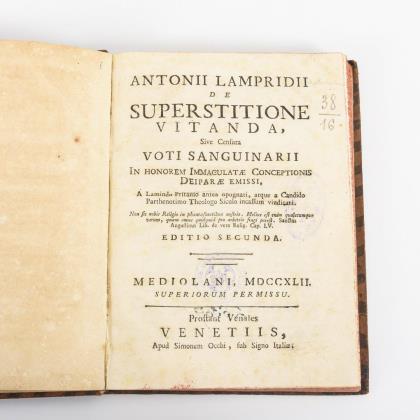 ANTONII LAMPRIDII
DE
SUPERSTITIONE
VITANDA,
Sive Censura
VOTI SANGUINARII
IN HONOREM IMMACULATÆ CONCEPTIONIS
DEIPARÆ EMISSI,
A Lamindo Pritanio antea oppugnati, atque a Candido
Parthenotimo Theologo Siculo incassum vindicati.
Non sit nobis Religio in phantasmatibus nostris. Melius est enim qualecumque
verum, quam omne quidquid pro arbitrio fingi potest. Sanctus
Augustinus Lib. de vera Relig. Cap. LV.
EDITIO SECUNDA.
MEDIOLANI, MDCCXLII.
SUPERIORUM PERMISSU.
Prostant Venales
VENETIIS,
Apud Simonem Occhi, sub Signo Italiæ;
38
16